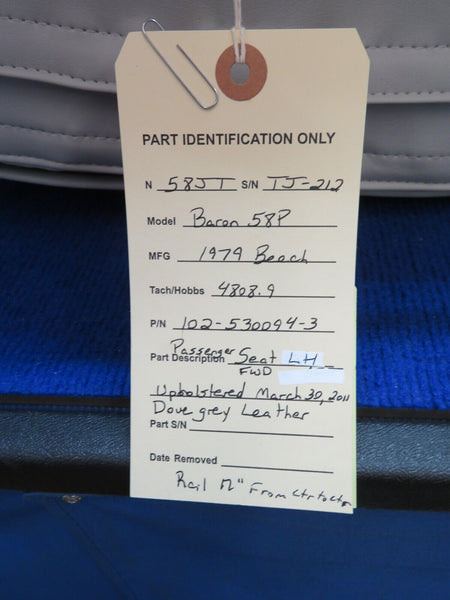 PART IDENTIFICATION ONLY
N 58JT S/N TJ-212
Model Baron 58P
MFG 1979 Beech
Tach/Hobbs 4808.9
P/N 102-530094-3
Part Description Passenger Seat LH
FWD
Upholstered March 30, 2011
Dove grey Leather
Part S/N
Date Removed
Rail 12" From ctr to ctr